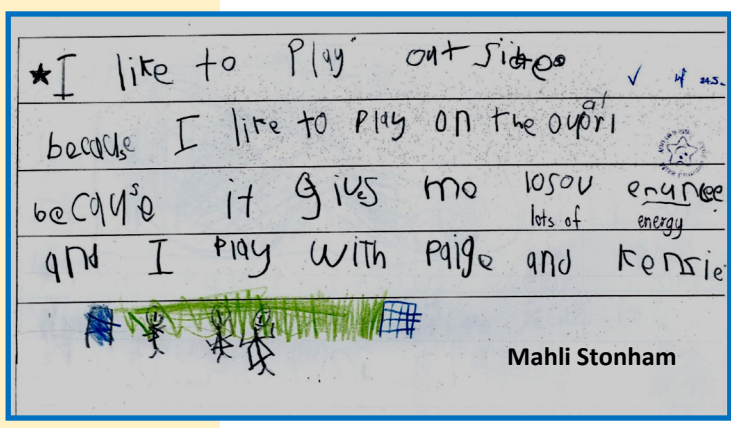 ★I like to Play outside.
because I like to play on the ovpri
al
because it gives me losov enunee
lots of energy
and I Play with paige and Kensie
Mahli Stonham